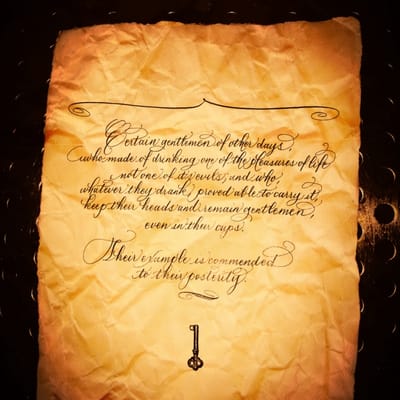 Certain gentlemen of other days,
who made of drinking one of the pleasures of life
not one of its evils; and who,
whatever they drank, proved able to carry it,
keep their heads and remain gentlemen,
even in their cups.
Their example is commended
to their posterity.